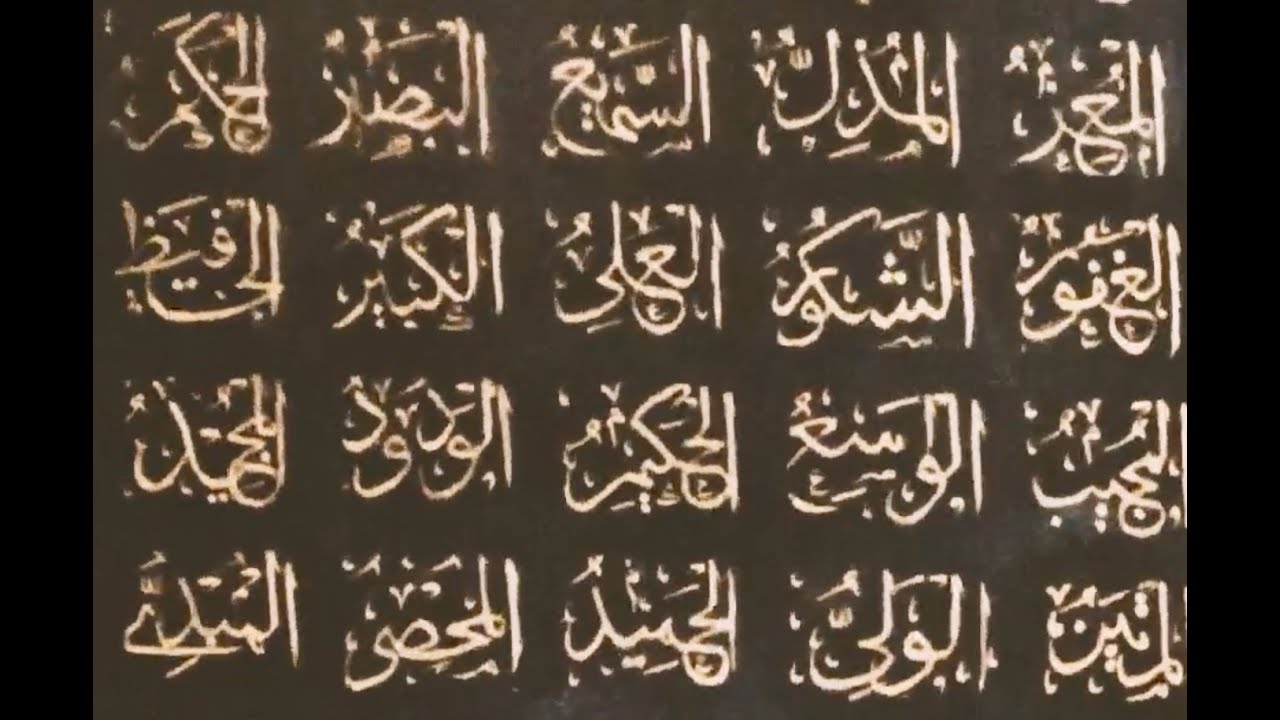 المُعِزُّ المُذِلُّ السَّمِيعُ البَصِيرُ الحَكَمُ
الغَفُورُ الشَّكُورُ العَلِيُّ الكَبِيرُ الحَافِيظُ
المُجِيبُ الوَسِعُ الحَكِيمُ الوَدُودُ المَجِيدُ
المَتِينُ الوَلِيُّ الحَمِيدُ المُحْصِي المُبْدِئُ